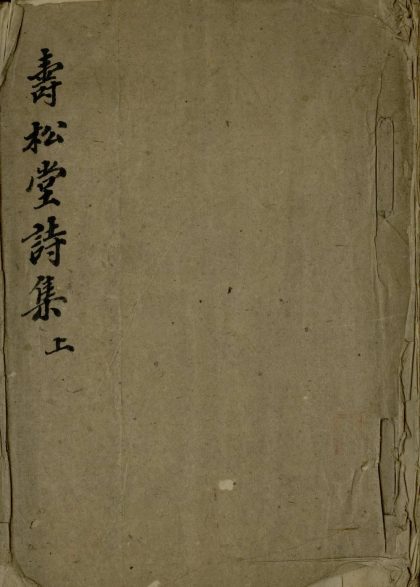 壽松堂詩集 上